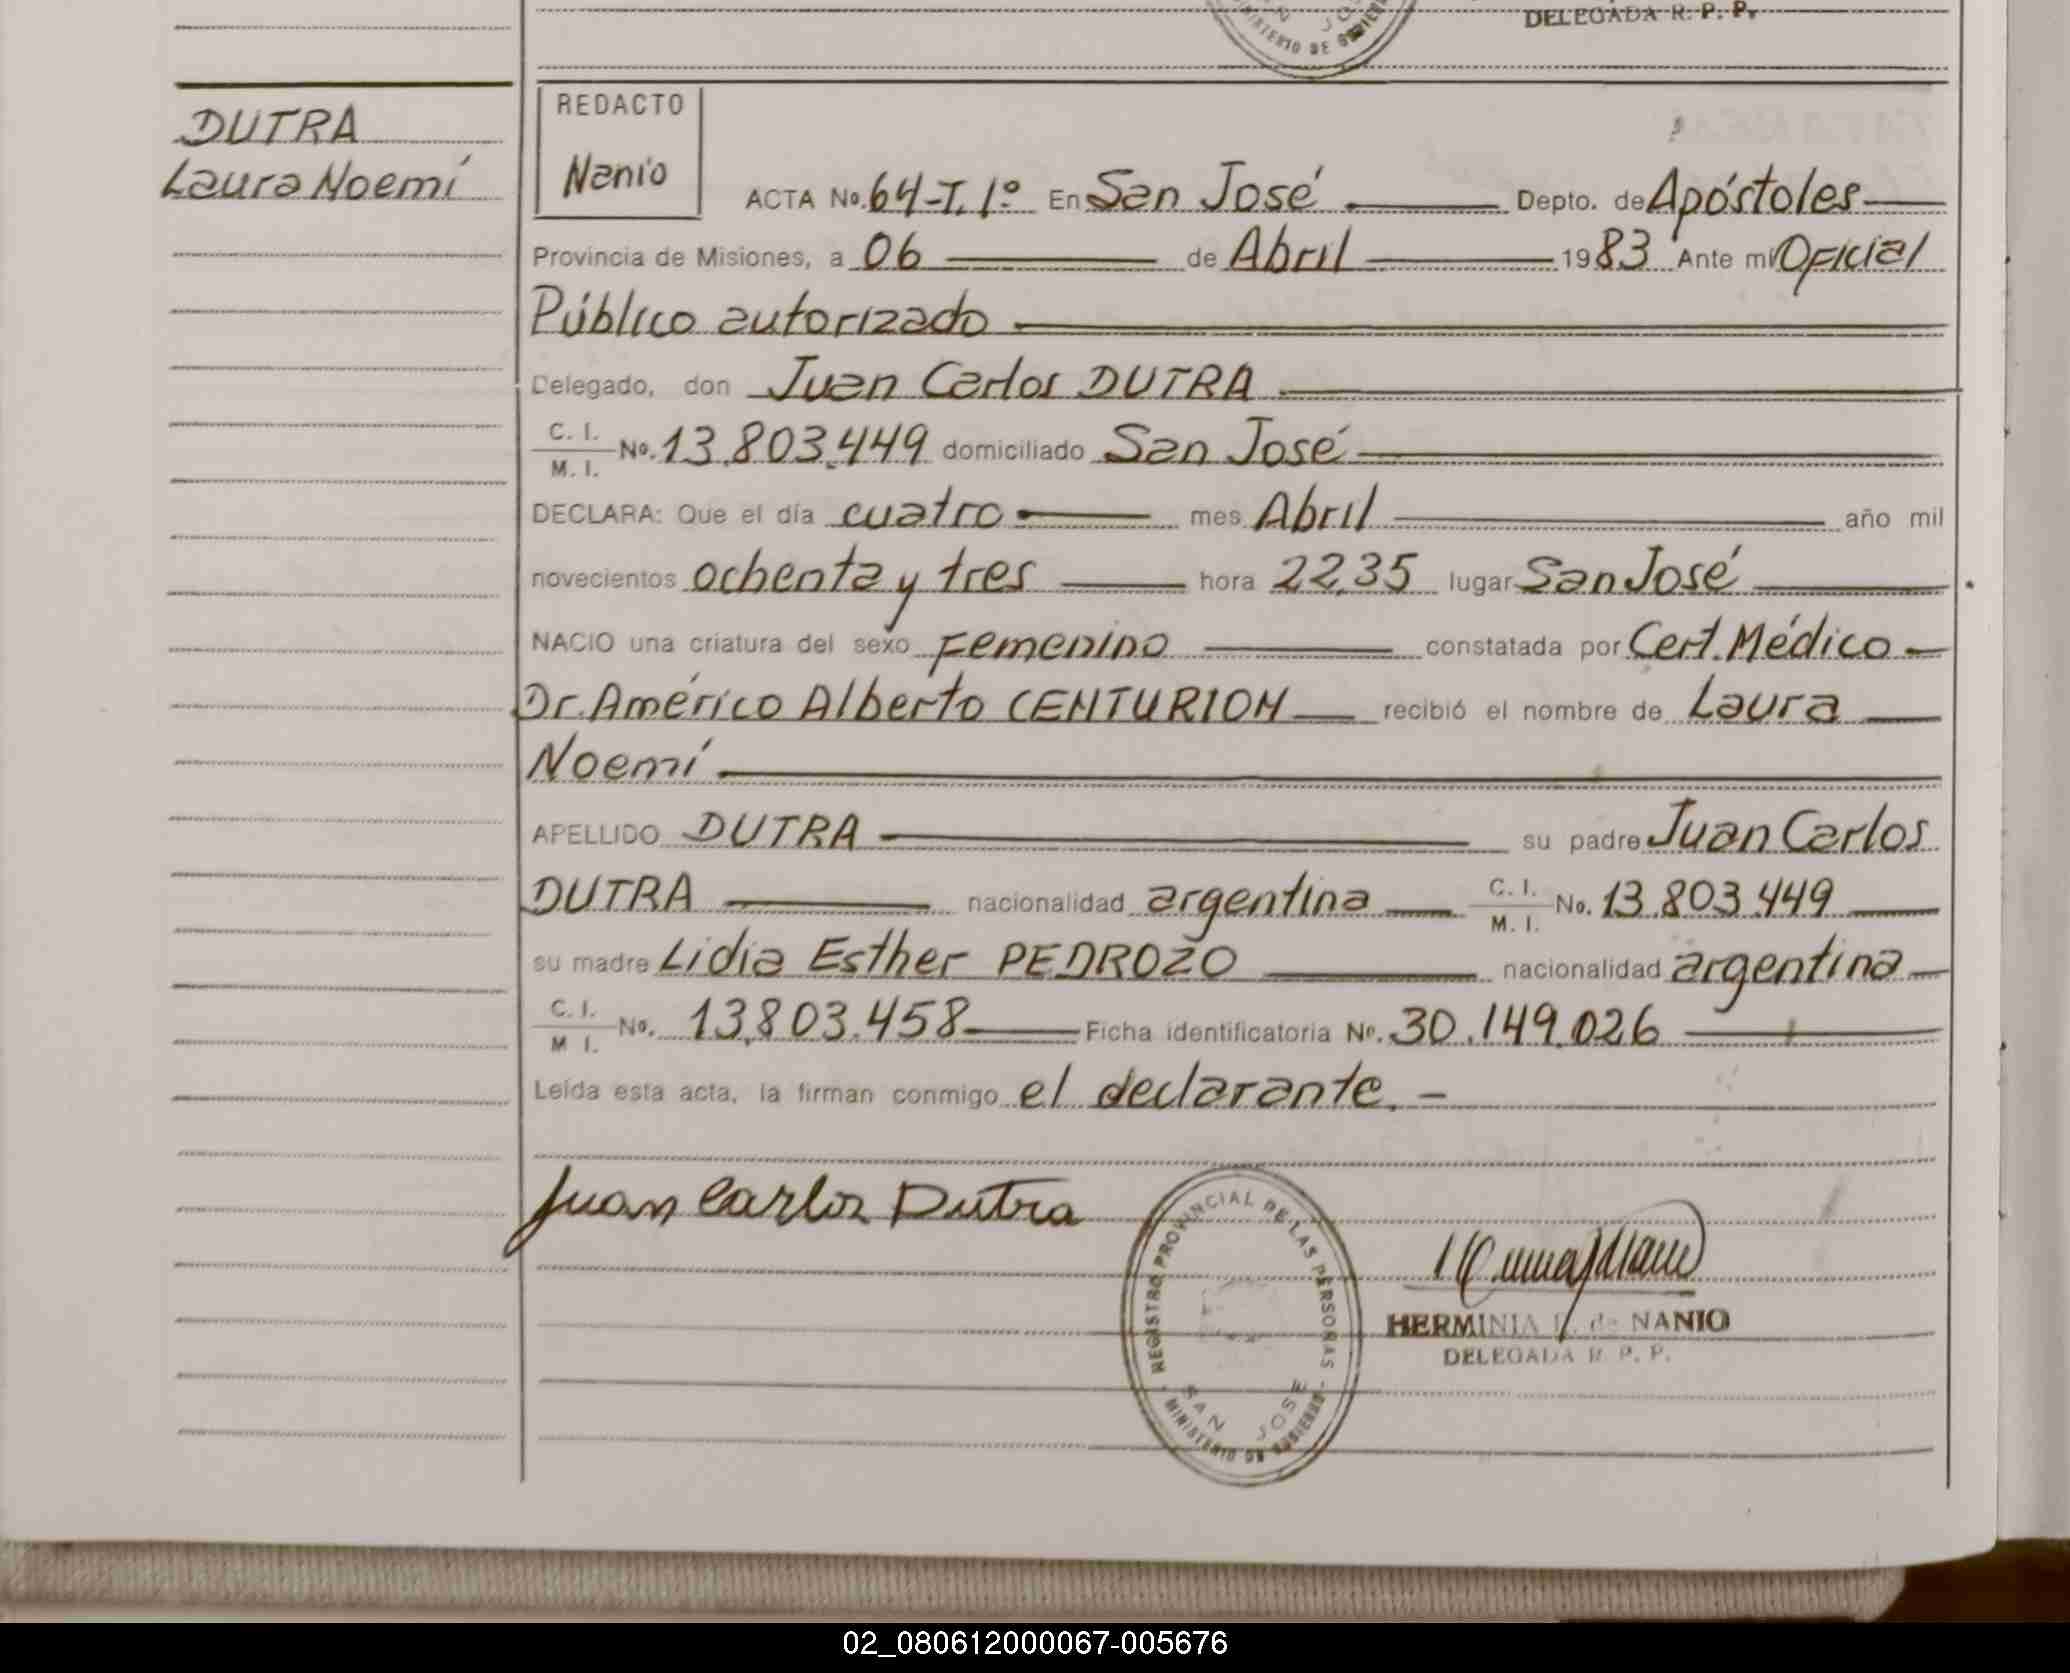 DELEGADA R. P. P.
SAN JOSE
MINISTERIO DE GOBIERNO
DUTRA
Laura Noemí
REDACTO
Nanio
ACTA No. 64-T. 1º En San José Depto. de Apóstoles
Provincia de Misiones, a 06 de Abril 1983 Ante mí Oficial
Público autorizado
Delegado, don Juan Carlos DUTRA
C. I. / M. I. No. 13.803.449 domiciliado San José
DECLARA: Que el día cuatro mes Abril año mil
novecientos ochenta y tres hora 22,35 lugar San José
NACIO una criatura del sexo Femenino constatada por Cert. Médico
Dr. Américo Alberto CENTURION recibió el nombre de Laura
Noemí
APELLIDO DUTRA su padre Juan Carlos
DUTRA nacionalidad argentina C. I. / M. I. No. 13.803.449
su madre Lidia Esther PEDROZO nacionalidad argentina
C. I. / M I. No. 13.803.458 Ficha identificatoria No. 30.149.026
Leída esta acta, la firman conmigo el declarante. -
Juan Carlos Dutra
REGISTRO PROVINCIAL DE LAS PERSONAS
SAN JOSE
MINISTERIO DE GOBIERNO
HERMINIA de NANIO
DELEGADA R. P. P.
02_080612000067-005676